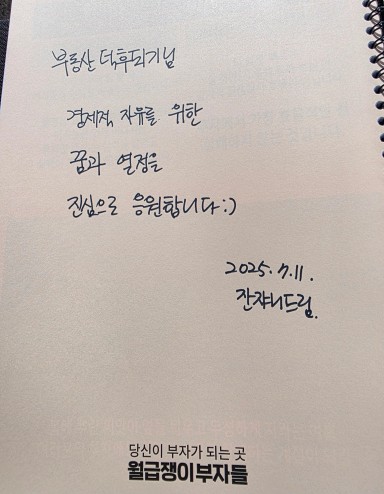 부동산 덕후되기님
경제적 자유를 위한
꿈과 열정을
진심으로 응원합니다:)
2025.7.11.
잔쟈니드림.
당신이 부자가 되는 곳
월급쟁이부자들